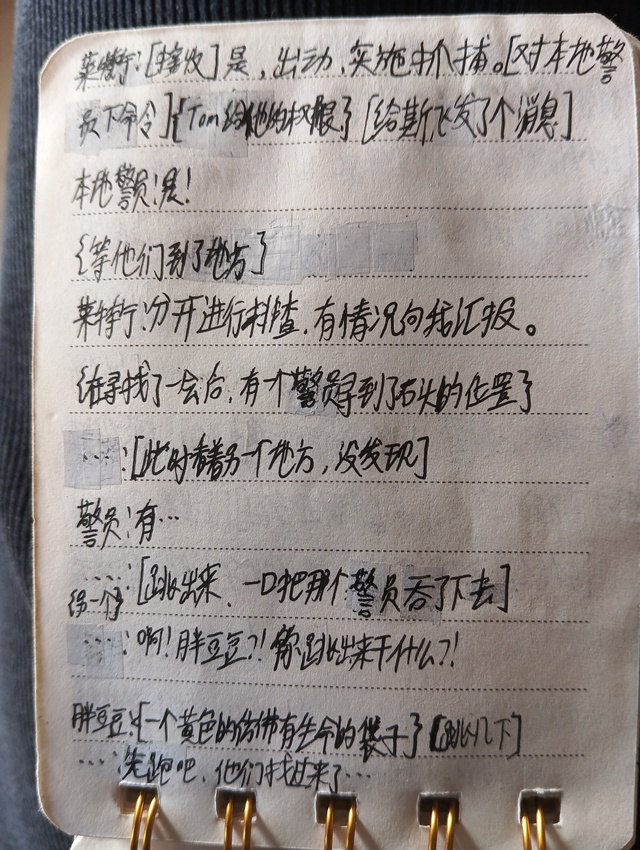 莱特宁:[接收]是,出动,实施抓捕。[对本地警
员下命令]{Tom给他的权限}[给斯飞发了个消息]
本地警员:是!
{等他们到了地方}
莱特宁:分开进行排查,有情况向我汇报。
{在寻找了一会后,有个警员得到了石头的位置}
····:[此时看着另一个地方,没发现]
警员:有···
····:[跳出来,一口把那个警员吞了下去]
{另一个}
····:啊!胖豆豆?!你跳出来干什么?!
胖豆豆:{一个黄色的仿佛有生命的袋子}[跳几下]
····:先跑吧,他们找过来了···